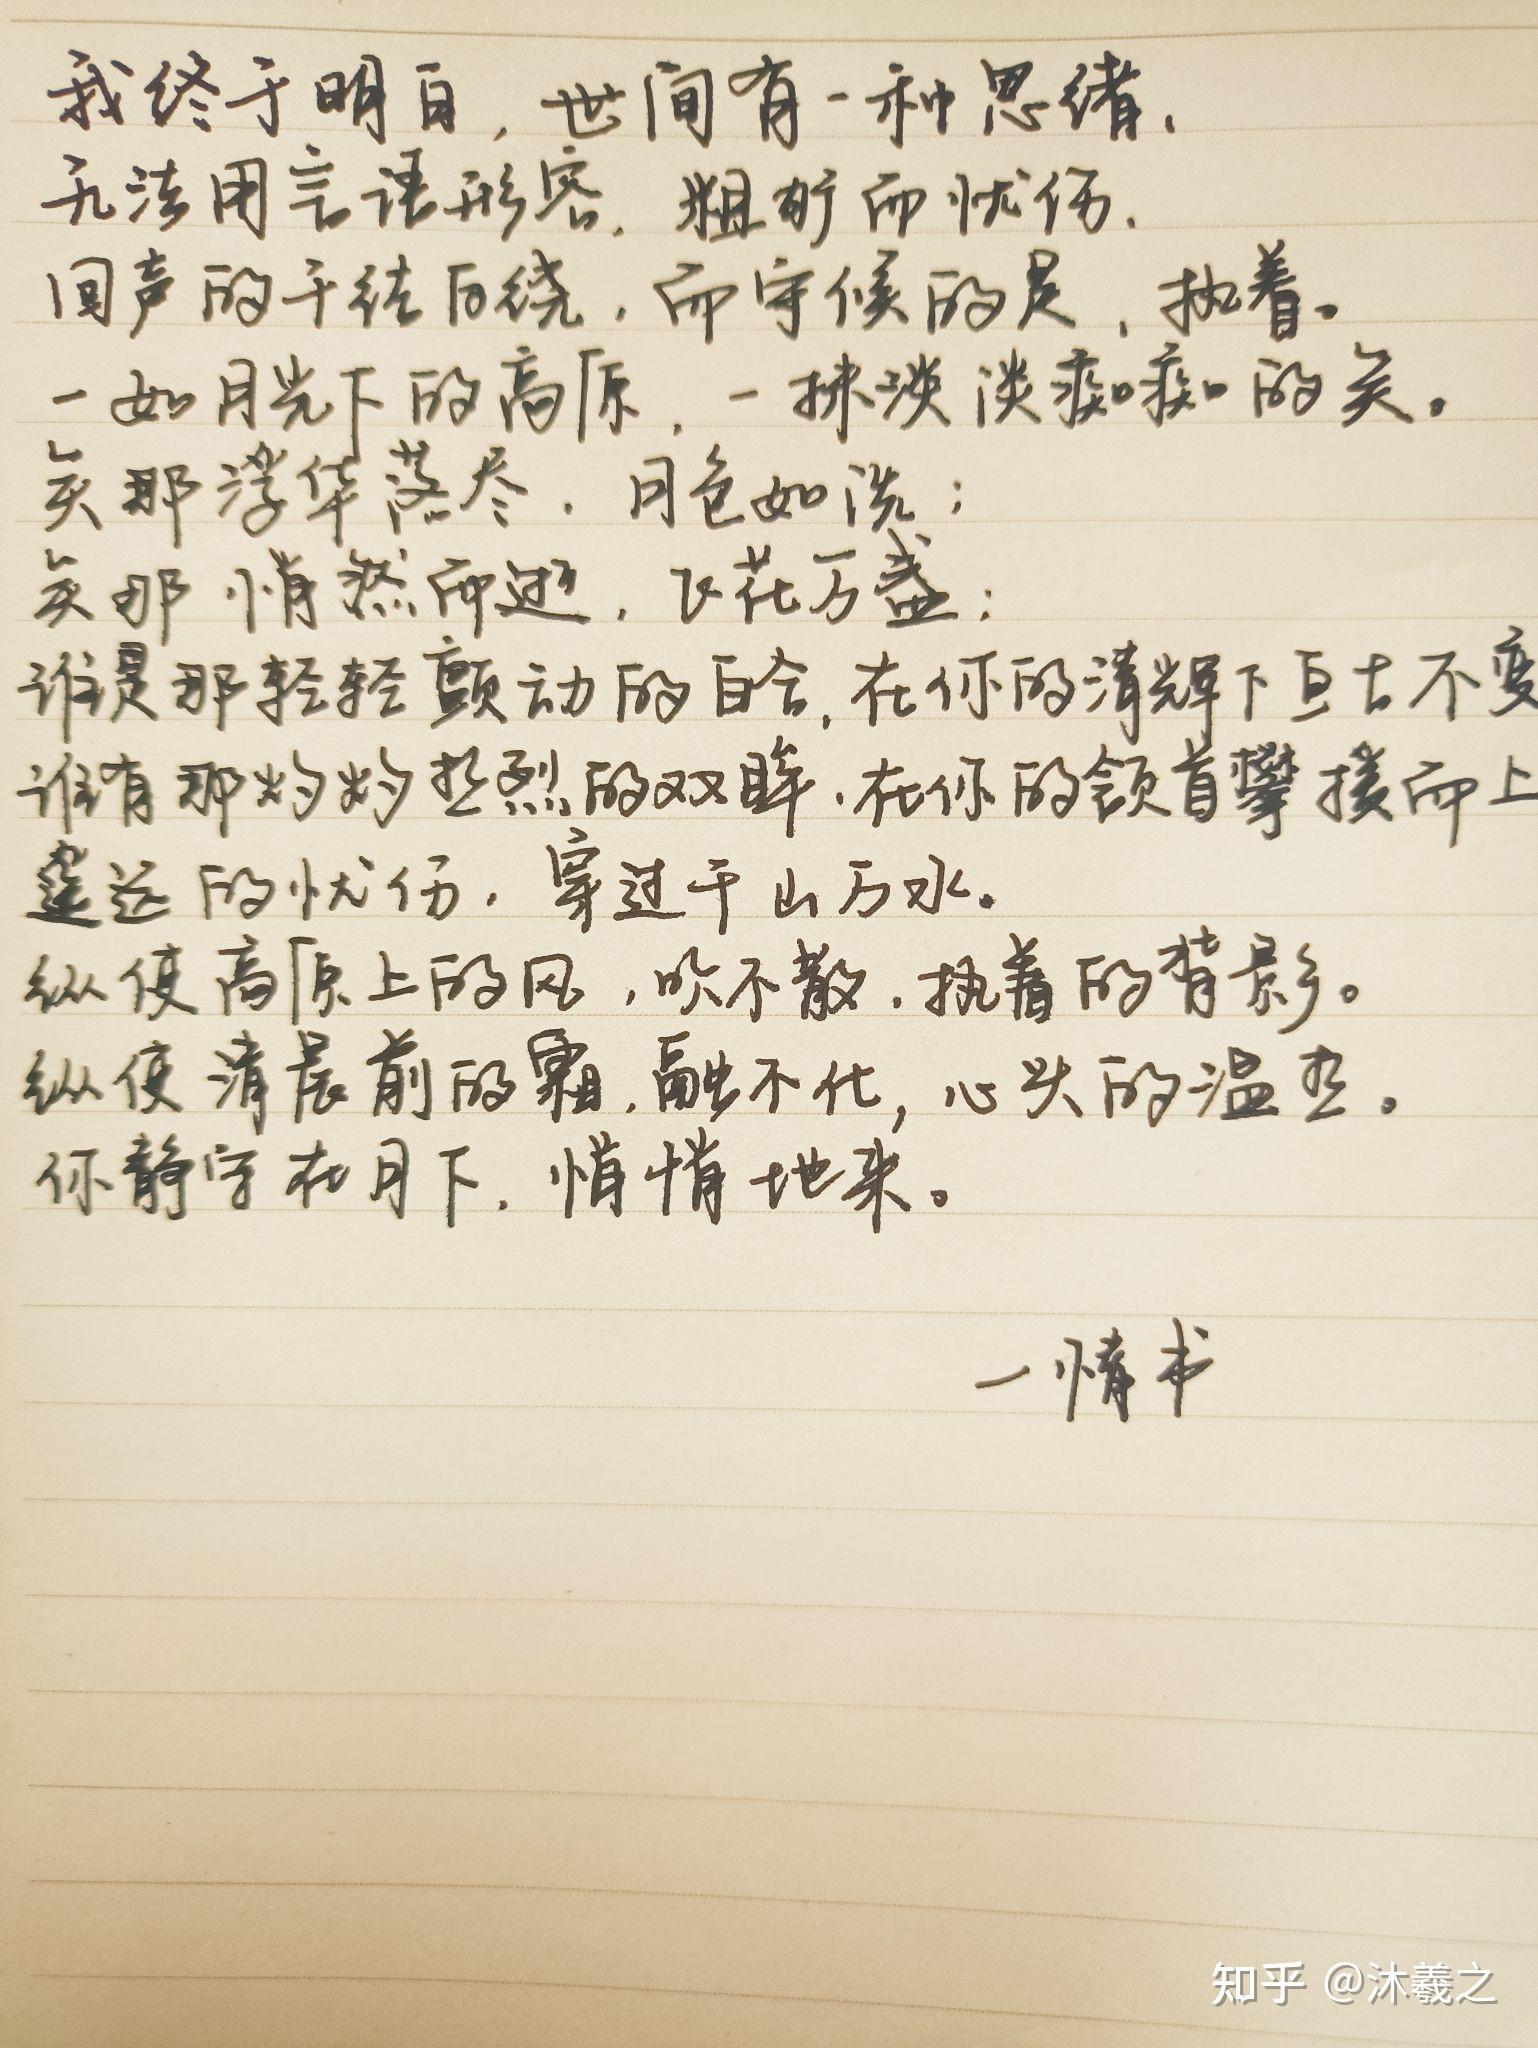 我终于明白，世间有一种思绪，
无法用言语形容，粗矿而忧伤，
回声的千结百绕，而守候的是，执着。
一如月光下的高原，一抹淡淡痴痴的笑。
笑那浮华落尽，月色如洗；
笑那悄然而逝，飞花万盏；
谁是那轻轻颤动的百合，在你的清辉下亘古不变
谁有那灼灼热烈的双眸，在你的颔首攀援而上
遥远的忧伤，穿过千山万水。
纵使高原上的风，吹不散，执着的背影。
纵使清晨前的霜，融不化，心头的温热。
你静守在月下，悄悄地来。
—情书
知乎 @沐羲之